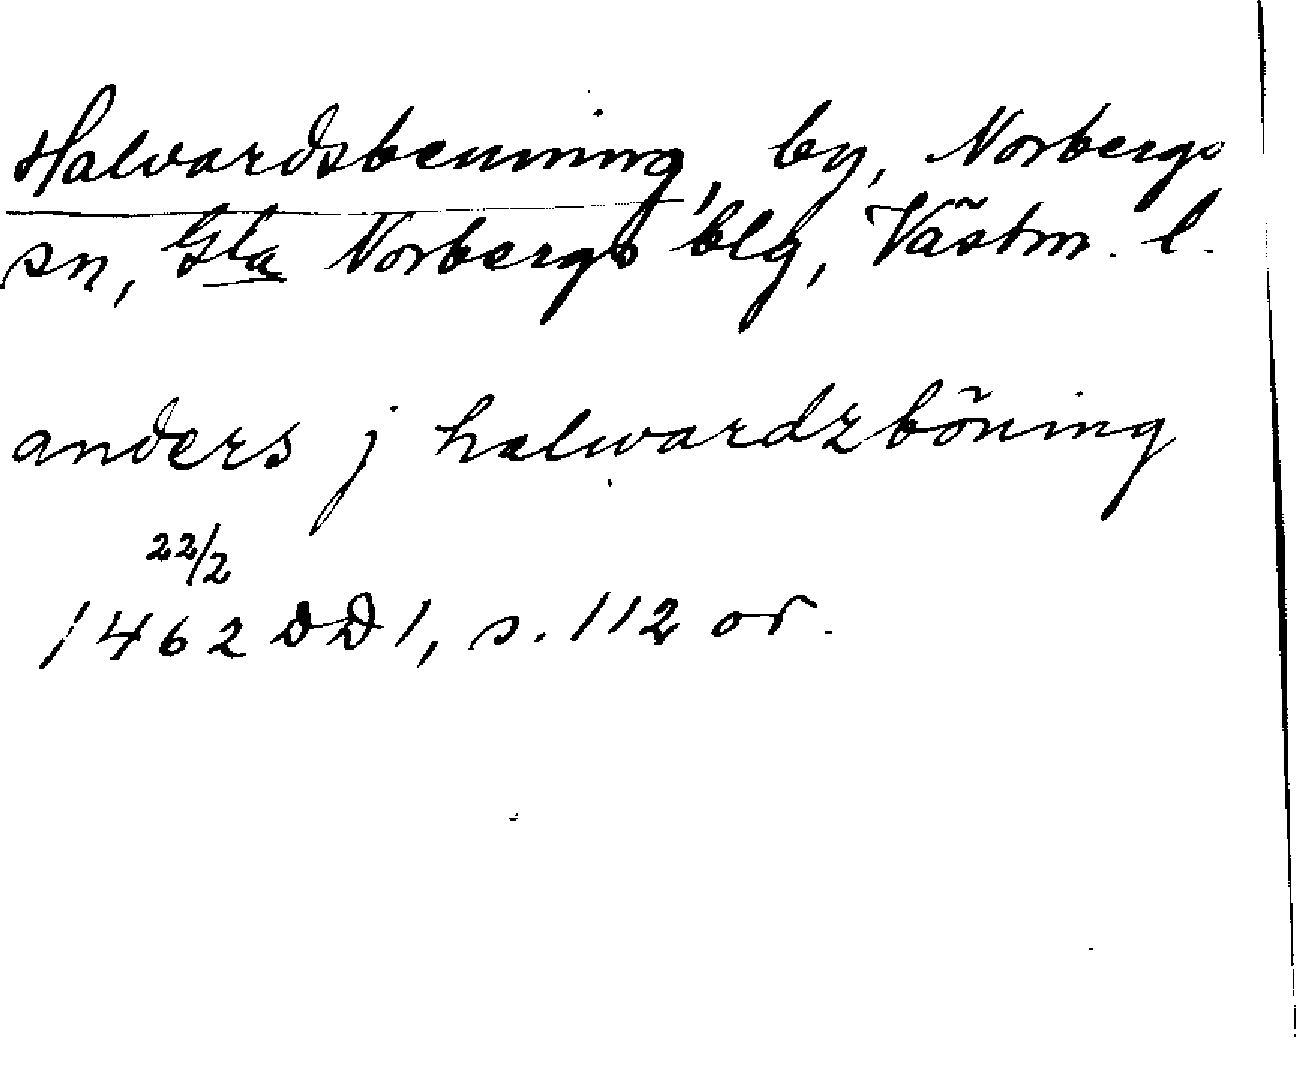 Halvardsbenning, by, Norbergs
sn, Gla Norbergs blg, Västm. l.
anders j halwardzböning
22/2
1462 DD1, s. 112 or.